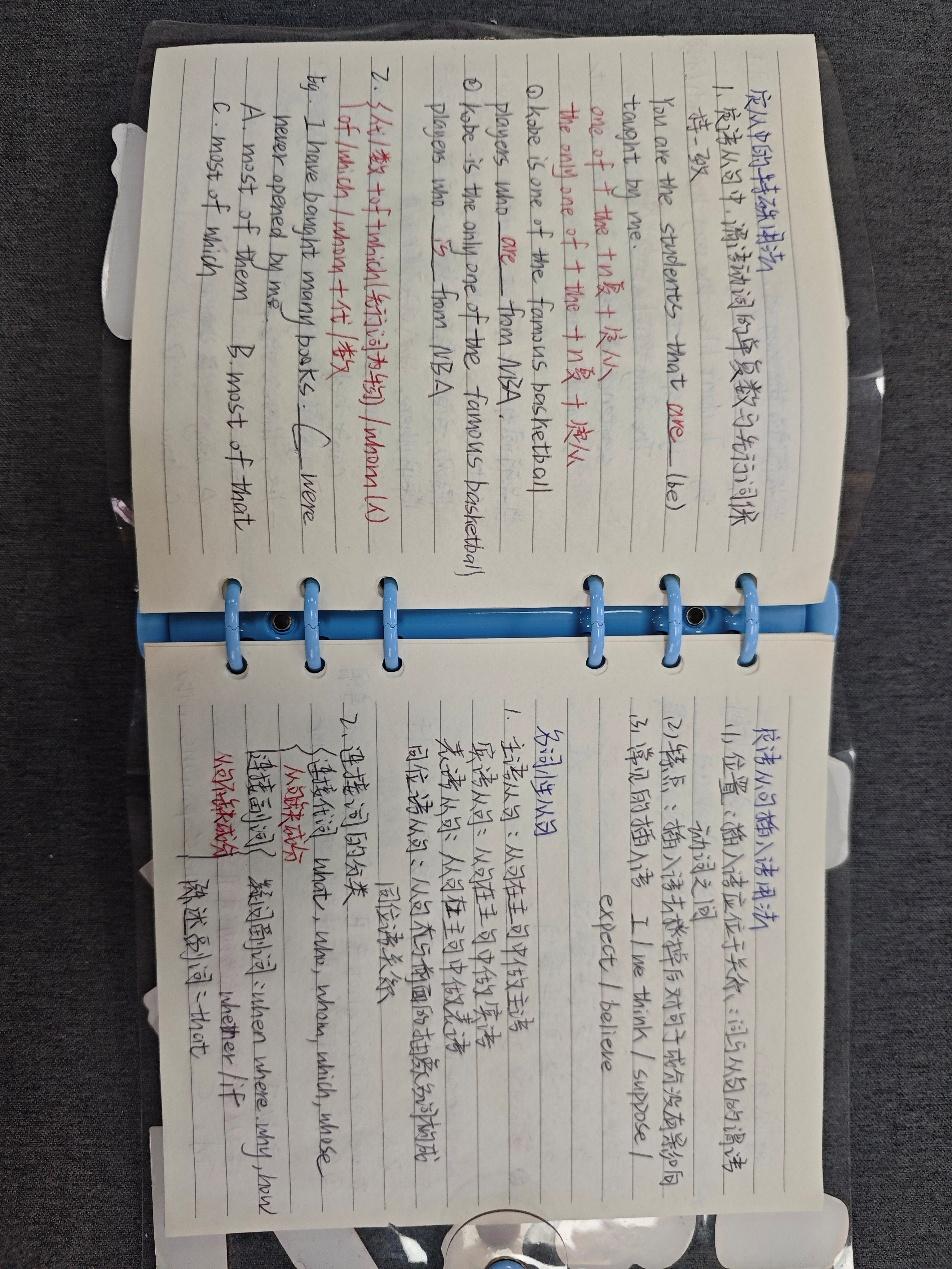 定从中的特殊用法
1. 定语从句中，谓语动词的单复数与先行词保
持一致
You are the students that are (be)
taught by me.
one of the + n复 + 定从
the only one of + the + n复 + 定从
① kobe is one of the famous basketball
players who are from NBA.
② kobe is the only one of the famous basketball
players who is from NBA
2. 代/数 + of + which (先行词为物) / whom (人)
of / which / whom + 代 / 数
eg. I have bought many books. C were
never opened by me.
A. most of them B. most of that
C. most of which
定语从句插入语用法
(1) 位置：插入语应位于关系词与从句的谓语
动词之间
(2) 特点：插入语去掉后对句子成分没有影响
(3) 常见的插入语 I / we think / suppose /
expect / believe
名词性从句
1. 主语从句：从句在主句中做主语
宾语从句：从句在主句中做宾语
表语从句：从句在主句中做表语
同位语从句：从句与前面的抽象名词构成
同位语关系
2. 连接词的分类
连接代词 what, who, whom, which, whose
从句缺成分
连接副词 疑问副词：when where, why, how
whether / if
从句不缺成分 陈述副词：that